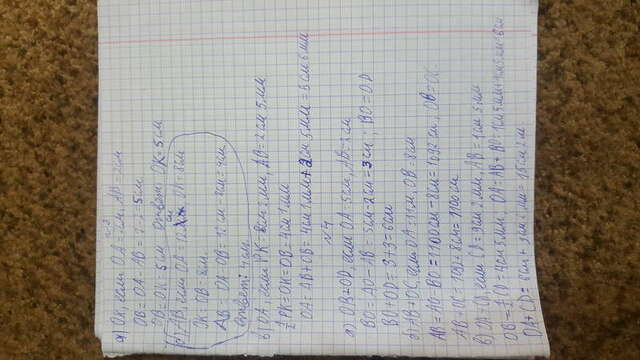 №3
а) OK, если OA = 7см, AB = 2см
OB = OA - AB = 7-2=5см
OB = OK = 5см Ответ: OK = 5см
б) AB, если OA = 12 см, OK = 8см
OK = OB = 8см.
AB = OA - OB = 12см - 8см = 4см
Ответ: 4см.
в) OA, если PK = 8см 2мм, AB = 2см 5мм
½PK = OK = OB = 4см 1мм
OA = AB + OB = 4см 1мм + 2см 5мм = 6см 6мм
№4
а) OB + OD, если OA = 5см, AB = 2см
BO = AO - AB = 5см - 2см = 3см ; BO = OD
BO + OD = 3 + 3 = 6см
б) AB + OC, если OA = 11м, OB = 8см
AB = AO - BO = 1100см - 8см = 1092см, OB = OC.
AB + OC = 1092 + 8см = 1100см
в) OA + CD, если CD = 9см 2мм, AB = 1см 5мм
OB = ½ CD = 4см 5мм ; OA = AB + BO = 1см 5мм +
OA + CD =